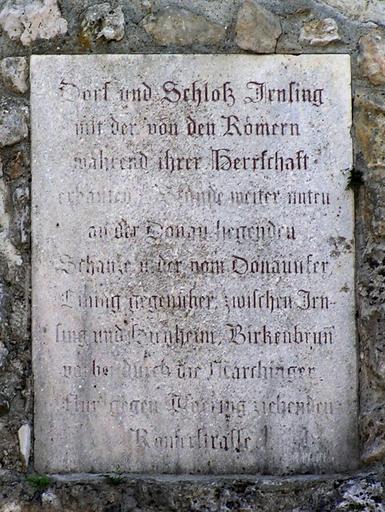 Dorf und Schloß Irnsing
mit der von den Römern
während ihrer Herrschaft
erbauten Stunde weiter unten
an der Donau liegenden
Schanze u. der vom Donauufer,
Eining gegenüber, zwischen Irn-
sing und Birkenbrunn
durch die Marchinger
Flur gegen ziehenden
Römerstrasse